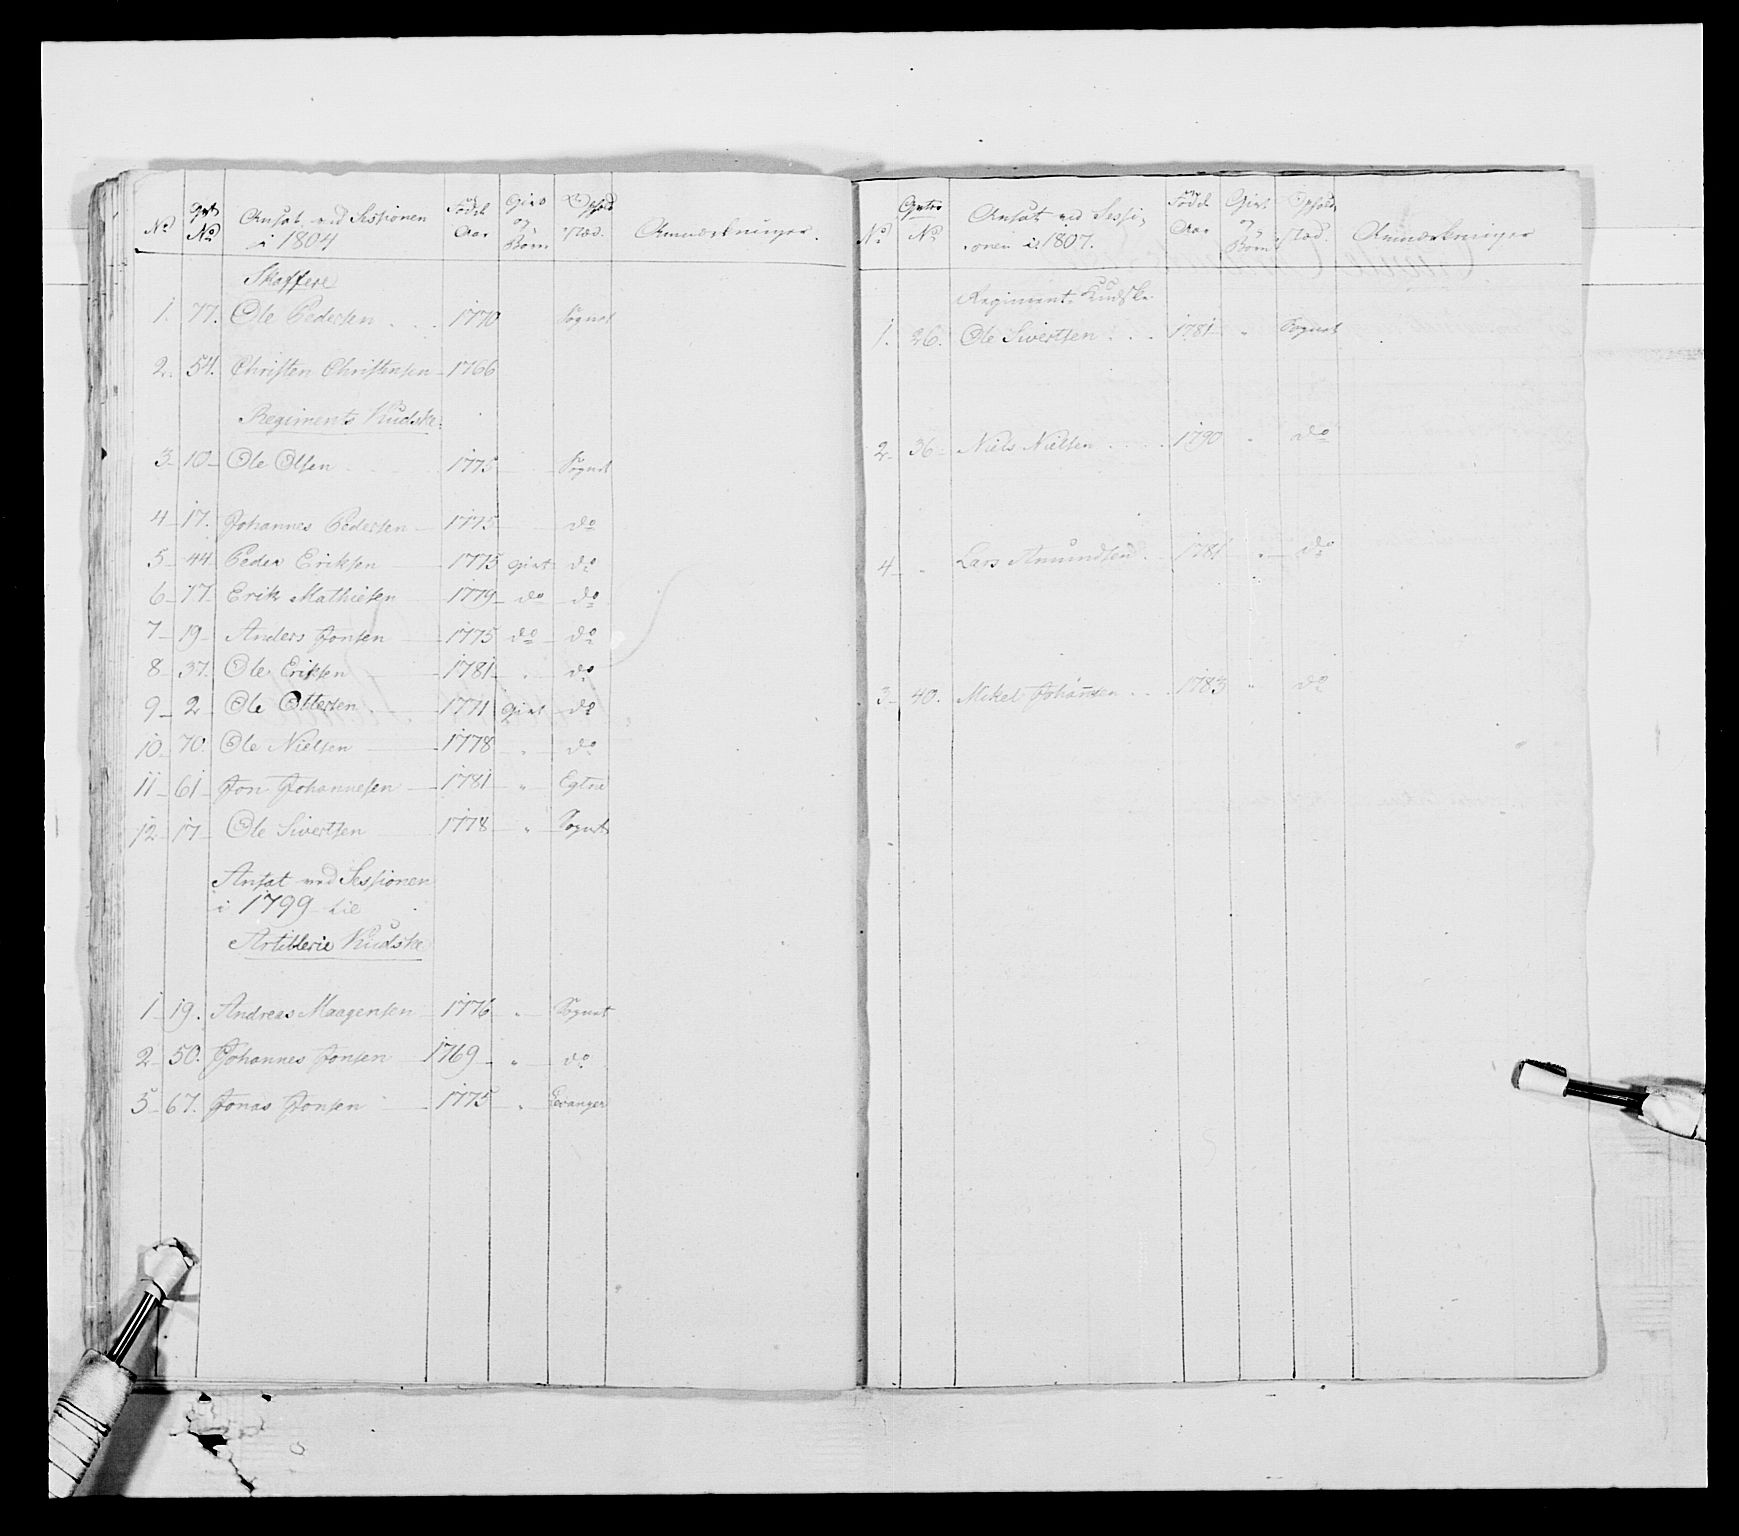 No | No | Ansat ved Sessionen i 1804 | Födsels Aar | Givt og Börn | Ophold sted. | Anmærkninger.
Skaffere
1. 77. Ole Pedersen 1770 Sognet
2. 54. Christen Christensen 1766
Regiments Kudske
3 10 Ole Olsen 1775 Sognet
4 17. Johannes Pedersen 1775 do
5 44 Peder Eriksen 1775 givt do
6 77 Erik Mathiesen 1779 do do
7 19 Anders Jonsen 1775 do do
8 37. Ole Eriksen 1781 " do
9 2 Ole Ottersen 1771 Givt do
10 70. Ole Nielsen 1778 " do
11 61 Jon Johannesen 1781 " Egtne
12 17 Ole Sivertsen 1778 " Sognet
Ansat ved Sessionen
i 1799 til
Artillerie Kudske
1 19. Andreas Maagensen 1776 " Sognet
2 50. Johannes Jonsen 1769 " do
3 67. Jonas Jonsen 1775 " Levanger
No | No | Ansat ved Sessionen i 1807. | Födsel Aar | Givt og Börn | Ophold sted. | Anmærkninger
Regiments Kudske
1. 26. Ole Sivertsen 1781 " Sognet
2 36 Niels Nielsen 1790 " do
4 " Lars Amundsen 1781 " do
3 40. Mikel Johansen 1783 " do